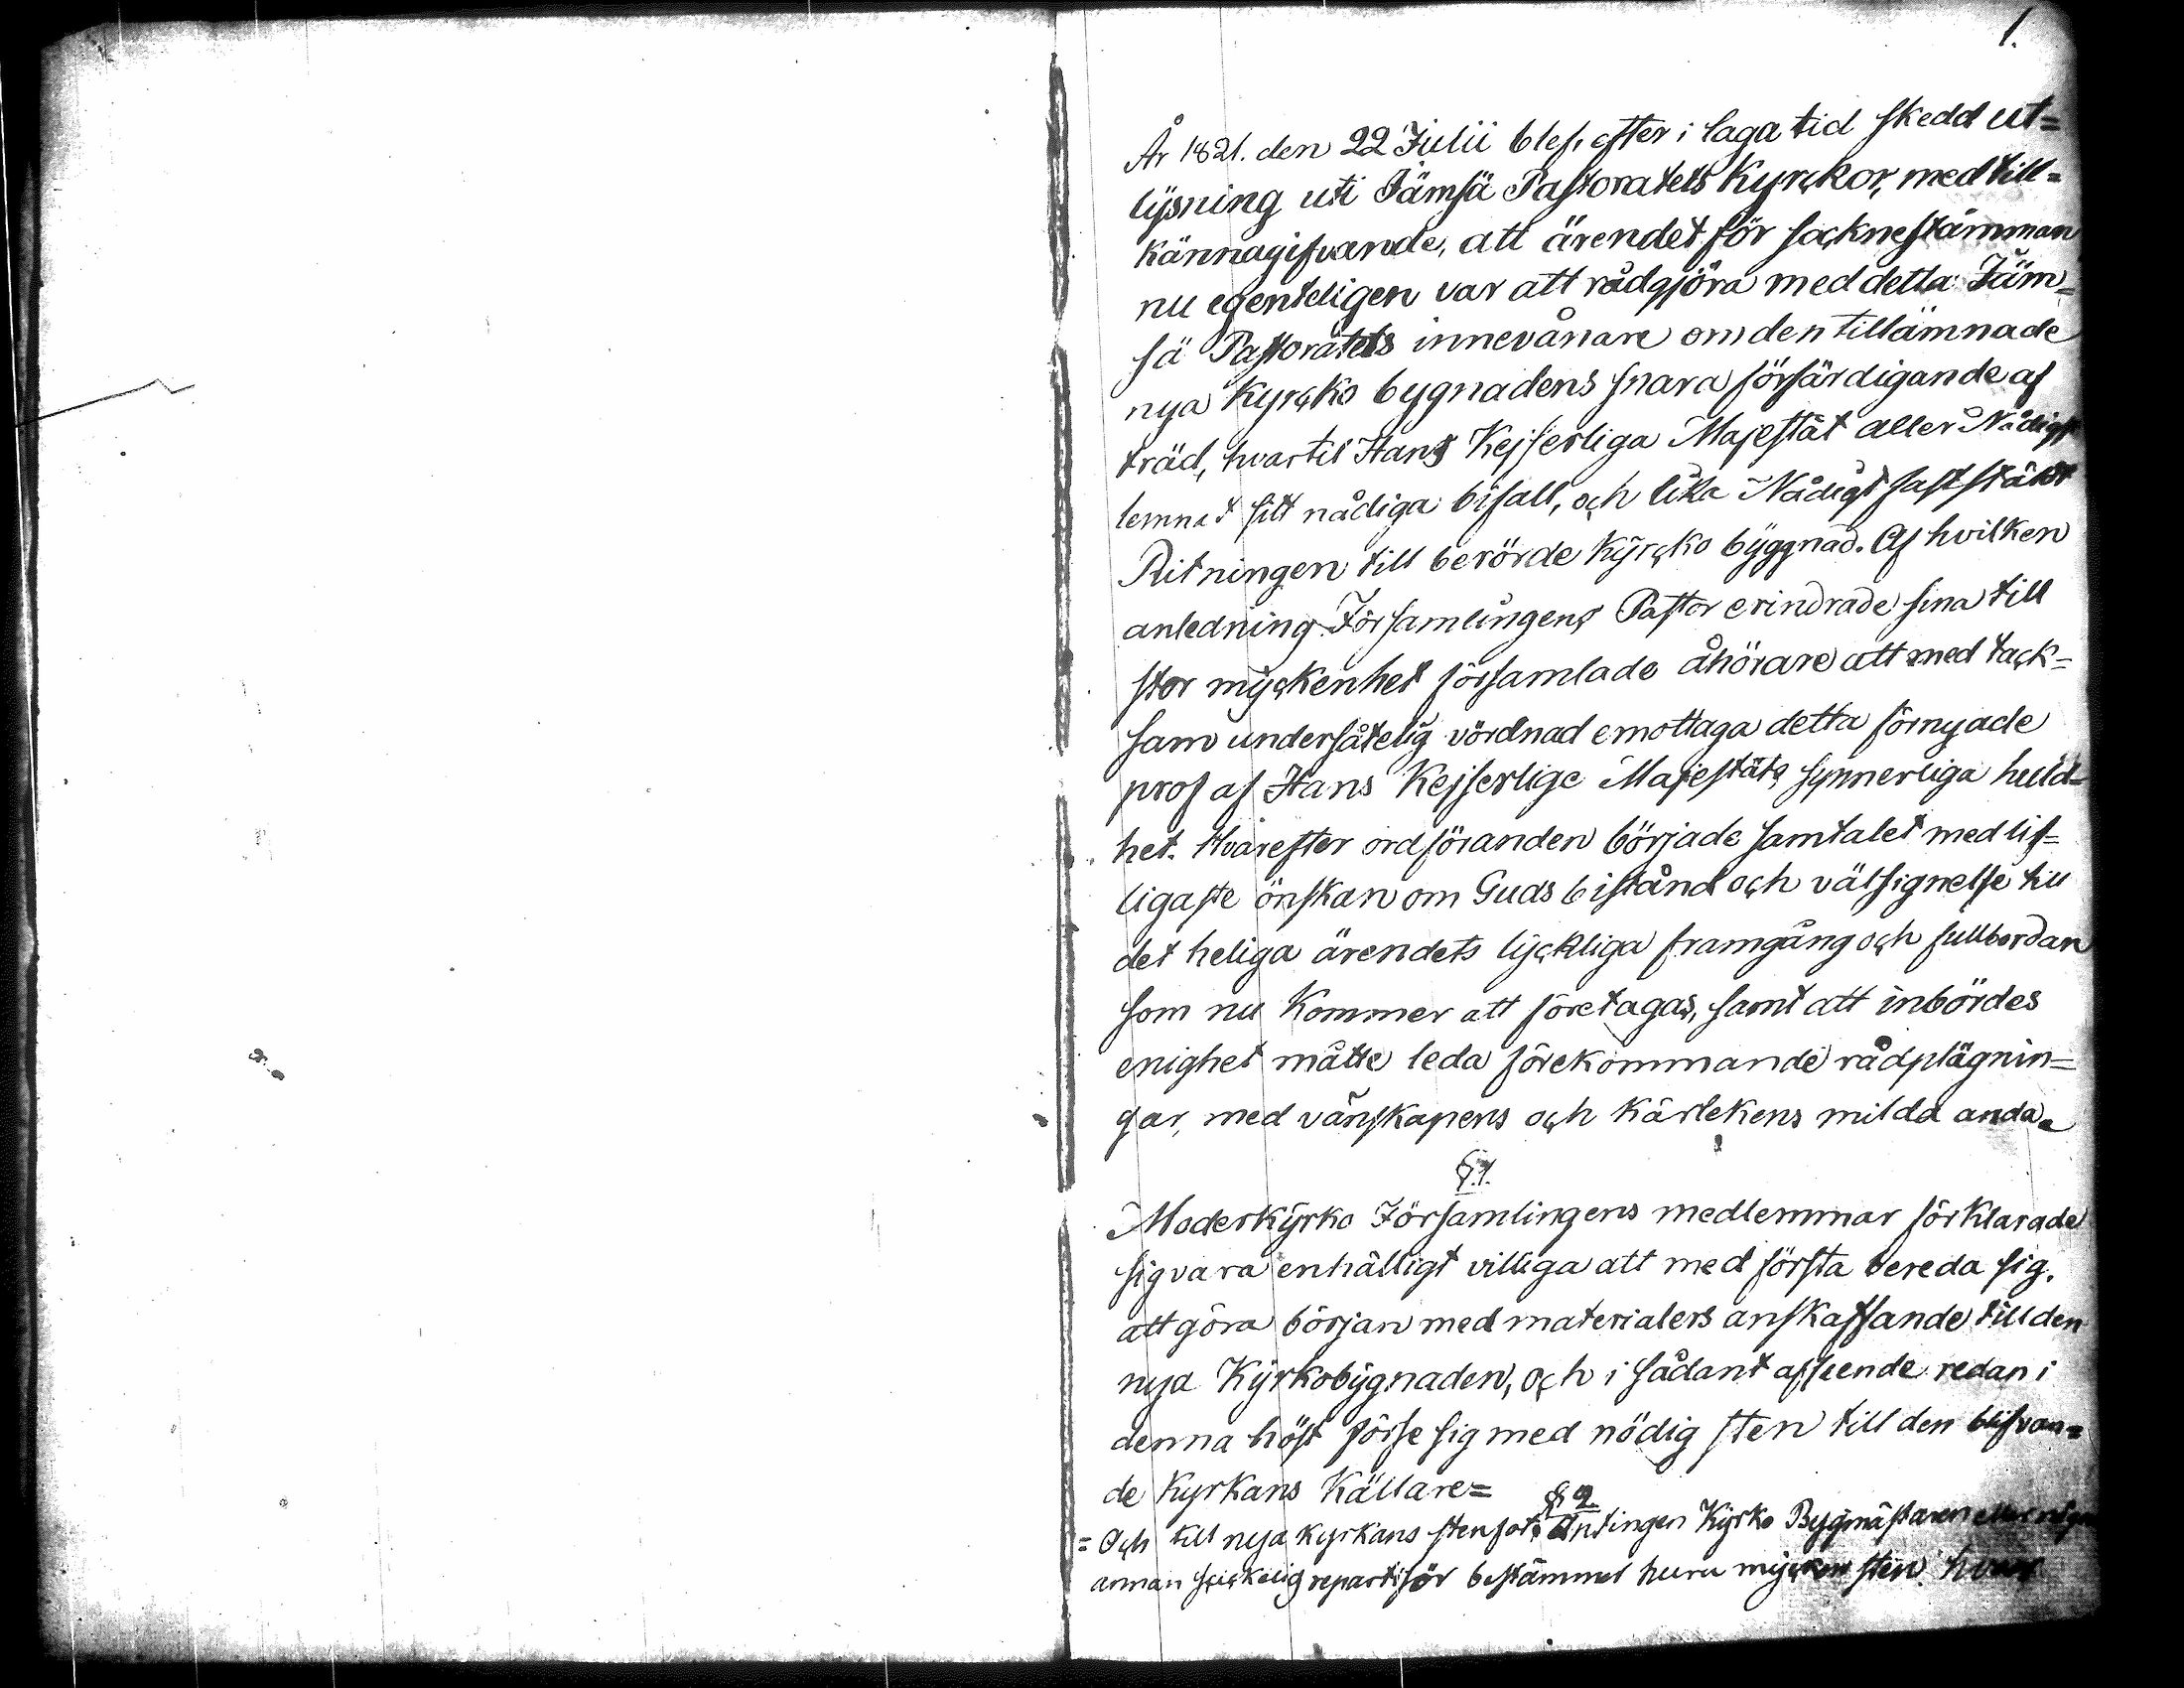 1.
År 1821. den 22 Julii blef, efter i laga tid skedd ut=
lysning uti Jämsä Pastoratets Kyrckor, med till=
kännagifvande, att ärendet för socknestämman
nu egenteligen var att rådgjöra med detta Jäm=
sä Pastoratets innevånare om den tillämnade
nya Kyrcko bygnadens snara förfärdigande af
träd, hvartil Hans Kejserliga Majestät aller Nådigst
lemnat sitt nådiga bifall, och lika Nådigt fastställt
Ritningen till berörde Kyrcko byggnad. Af hvilken
anledning Församlingens Pastor erindrade sina till
stor myckenhet församlade åhörare att med tack=
sam undersåtelig vördnad emottaga detta förnyade
prof af Hans Kejserlige Majestäts synnerliga huld=
het. Hvarefter ordföranden började samtalet med lif=
ligaste önskan om Guds bistånd och välsignelse till
det heliga ärendets lyckliga framgång och fullbordan
som nu Kommer att företagas, samt att inbördes
enighet måtte leda förekommande rådplägnin=
gar, med vänskapens och Kärlekens milda anda.
§.1.
Moderkyrko Församlingens medlemmar förklarade
sig vara enhälligt villiga att med första bereda sig,
att göra början med materialers anskaffande till den
nya Kyrkobygnaden, och i sådant afseende redan i
denna höst förse sig med nödig sten till den blifvan=
de Kyrkans Källare=
§ 2.
= Och till nya kyrkans stenfot, Antingen Kyrko Bygmästaren eller någon
annan skickelig repartitör bestämmer huru mycken sten hvar